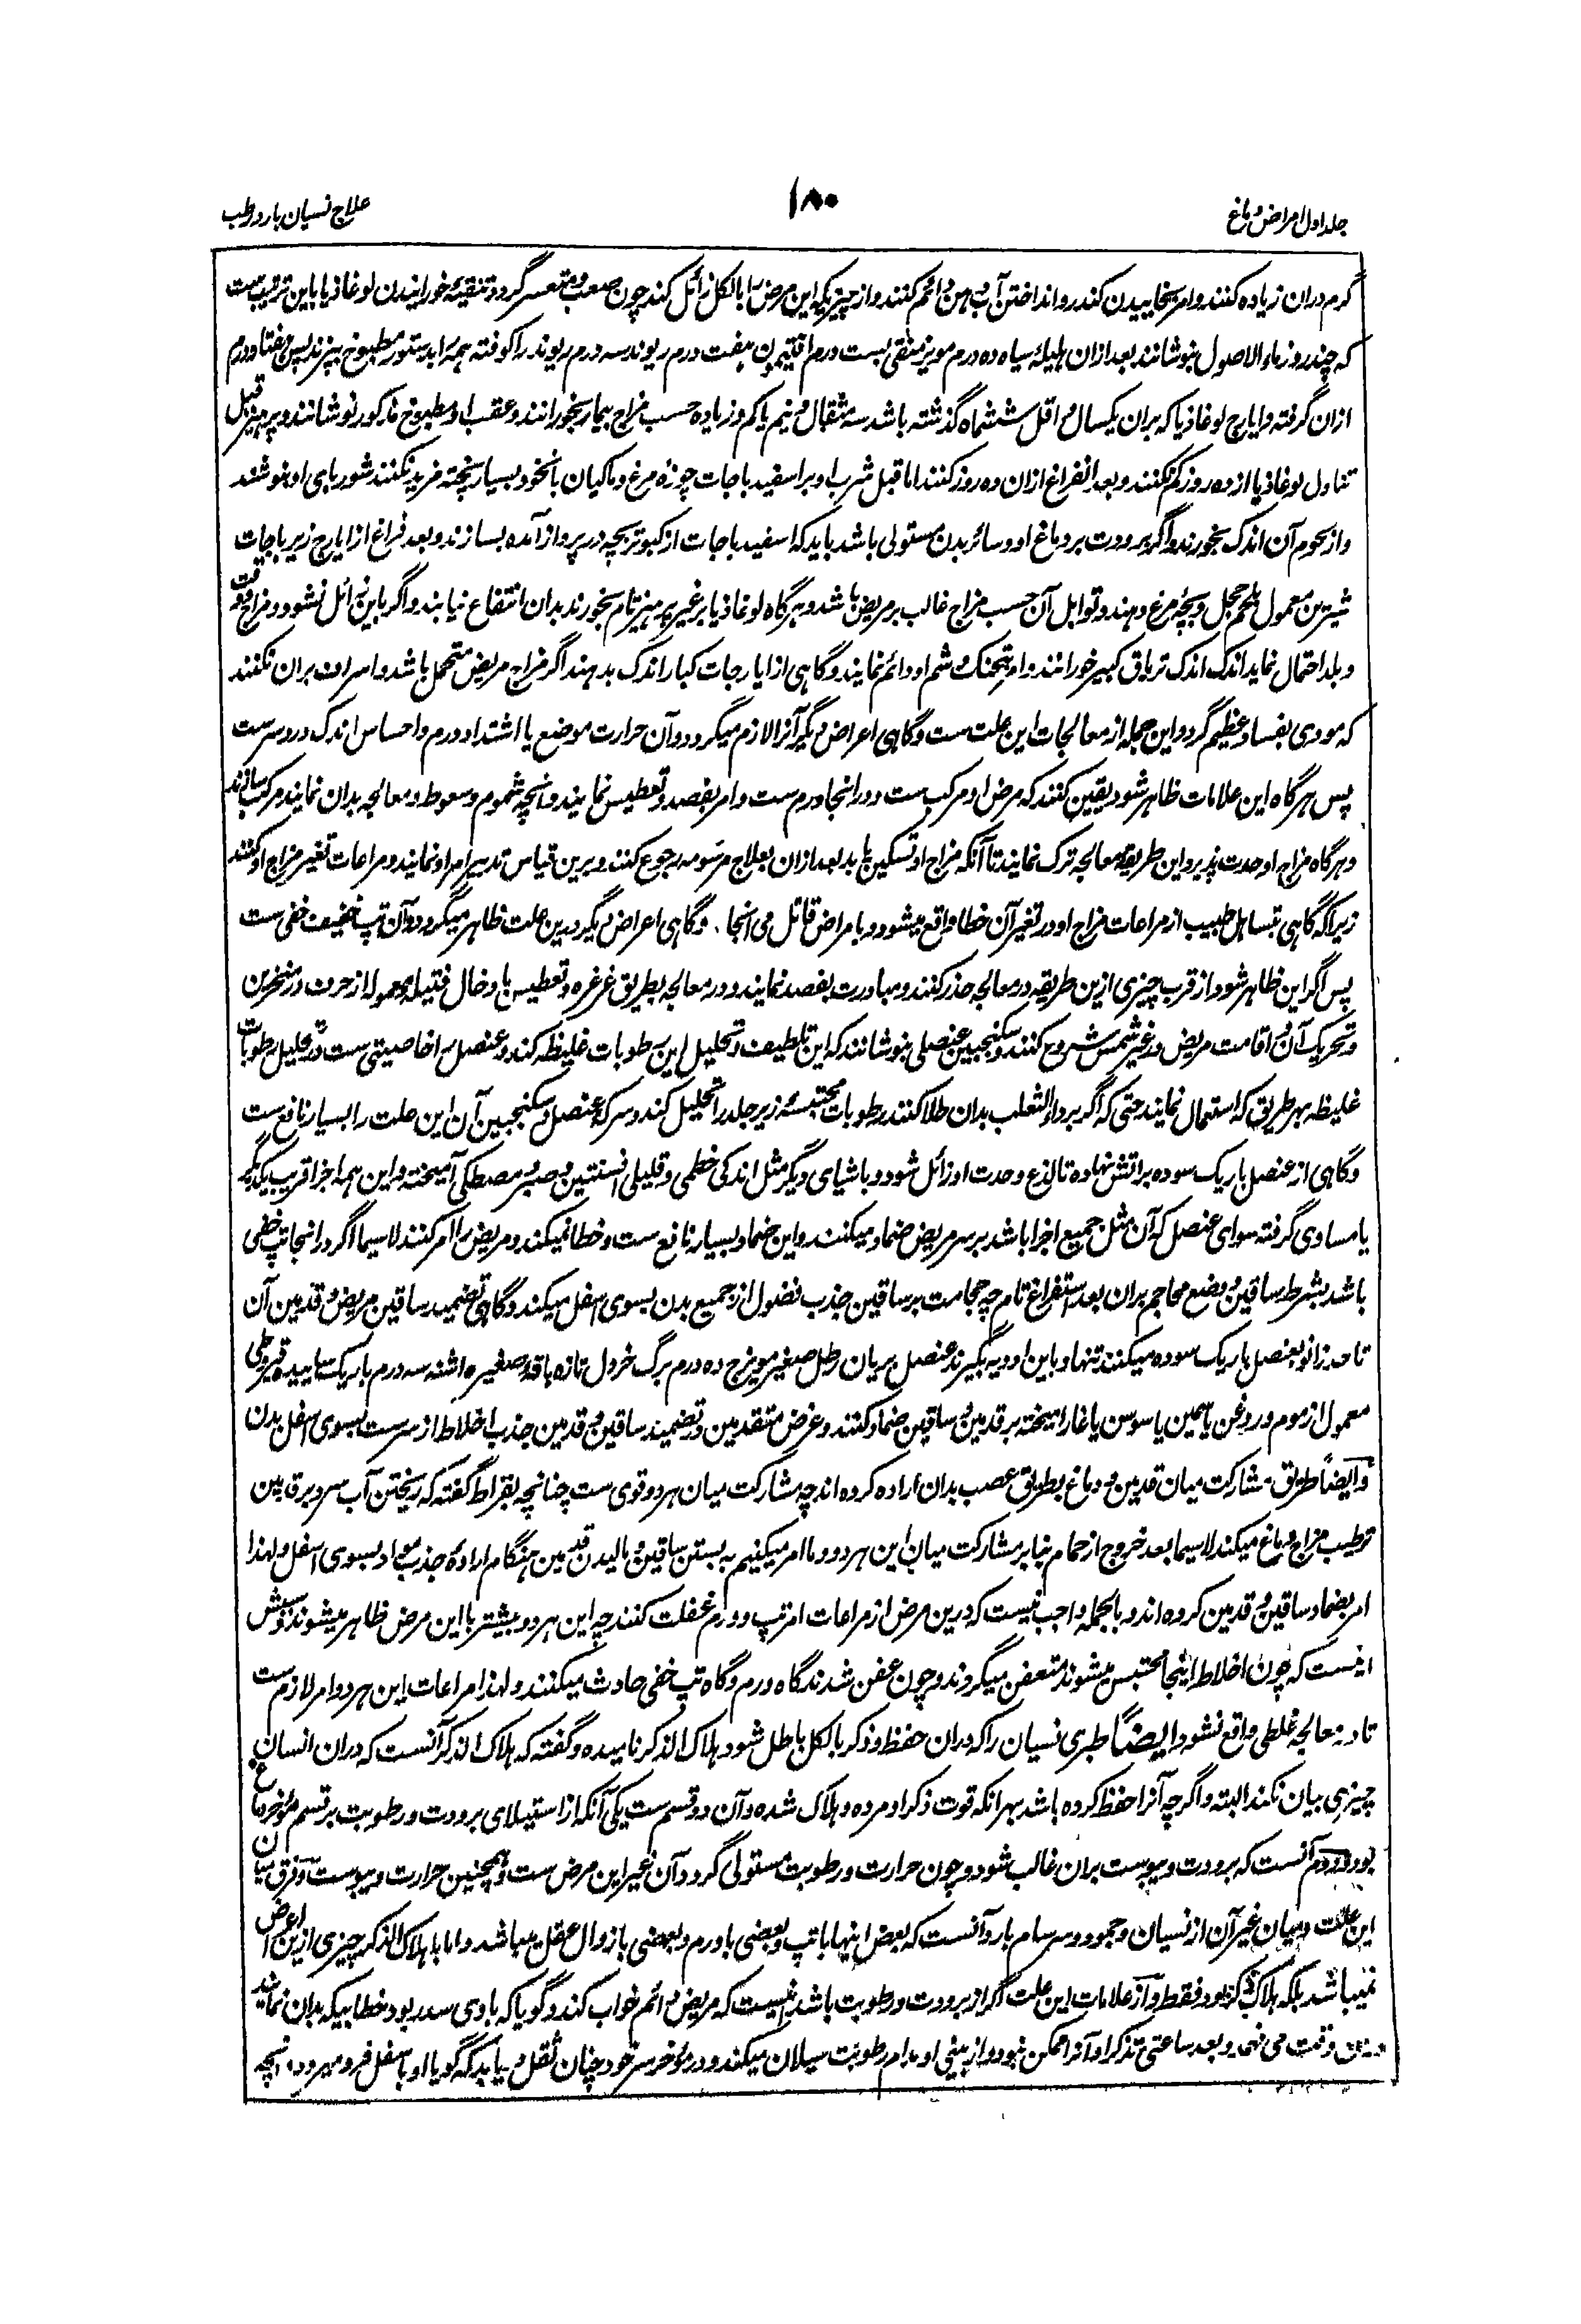 جلد اول امراض دماغ
۱۸۰
علاج نسیان بارد رطب
گرم دران زیاده کنند و امر بخاییدن کندر و انداختن آب دهن دائم کنند و از چیزیکه این مرض را بالکل زائل کند چون صعب و متعسر گردد تنقیهٔ خورانیدن لوغاذیا باین ترتیب ست
که چند روز ماء الاصول بنوشانند بعد ازان هلیله سیاه ده درم مویز منقی بست درم افتیمون هفت درم ریوند سه درم ریوند را کوفته همه را بدستور مطبوخ بپزند پس هفتاد درم
ازان گرفته و ایارج لوغاذیا که بران یکسال و اقل ششماه گذشته باشد سه مثقال و نیم یا کم و زیاده حسب مزاج بیمار بخورانند و عقب او مطبوخ مذکور نوشانند و پرهیز قبل
تناول لوغاذیا از ده روز کم نکنند و بعد انفراغ ازان ده روز کنند اما قبل شرب او بر اسفیدباجات چوزهٔ مرغ و ماکیان با نخود بسیار پخته مزید نکنند شوربای او بنوشند
و از لحوم آن اندک بخورند و اگر برودت بر دماغ او و سائر بدن مستولی باشد باید که اسفیدباجات از کبوتر بچه در پرواز آمده بسازند و بعد فراغ از ایارج زیرباجات
شیرین معمول بلحم حجل و بچهٔ مرغ دهند و توابل آن حسب مزاج غالب بر مریض باشد و هرگاه لوغاذیا بر غیر پرهیز تام بخورند بدان انتفاع نیابند و اگر باین زائل نشود و مزاج وقت
و بلد احتمال نماید اندک اندک تریاق کبیر خورانند و امر بتحنک و شم او دائم نمایند و گاهی از ایارجات کبار اندک بدهند اگر مزاج مریض متحمل باشد و اسراف بران نکنند
که مودی بفساد عظیم گردد این جمله از معالجات این علت ست و گاهی اعراض دیگر آنرا لازم میگردد و آن حرارت موضع یا اشتداد ورم و احساس اندک درد سر ست
پس هرگاه این علامات ظاهر شود یقین کنند که مرض او مرکب ست و در انجا ورم ست و امر بفصد و تعطیس نمایند و آنچه شموم و سعوط و معالجه بدان نمایند مرکب سازند
و هرگاه مزاج او حدت پذیرد این طریقه معالجه ترک نمایند تا آنکه مزاج او تسکین یابد بعد ازان بعلاج مرسومه رجوع کنند و برین قیاس تدبیر امر او نمایند و مراعات تغیر مزاج او کنند
زیرا که گاهی بتساهل طبیب از مراعات مزاج او در تغیر آن خطا واقع میشود و بامراض قاتل می انجامد و گاهی اعراض دیگر درین علت ظاهر میگردد و آن تپ خفیف خفی ست
پس اگر این ظاهر شود از قرب چیزی ازین طریقه در معالجه حذر کنند و مبادرت بفصد نمایند و در معالجه بطریق غرغره و تعطیس با دخال فتیله معموله از حرف در منخرین
و تحریک آن و اقامت مریض در غیر شمس شروع کنند و سکنجبین عنصلی بنوشانند که این تلطیف و تحلیل این رطوبات غلیظه کند و عنصل را خاصیتی ست در تحلیل رطوبات
غلیظه بهر طریق که استعمال نمایند حتی که اگر بر داء الثعلب بدان طلا کنند رطوبات محتبسهٔ زیر جلد را تحلیل کند و سرکهٔ عنصل و سکنجبین آن این علت را بسیار نافع ست
و گاهی از عنصل باریک سوده بر آتش نهاده تا لذع و حدت او زائل شود و باشیای دیگر مثل اندکی خطمی و قلیلی افسنتین و صبر و مصطکی آمیخته و این همه اجزا قریب یکدیگر
یا مساوی گرفته سوای عنصل که آن مثل جمیع اجزا باشد بر سر مریض ضماد میکنند و این ضماد بسیار نافع ست و خطا نمیکند و مریض را امر کنند لاسیما اگر در انجا تپ خفی
باشد بشرط ساقین و وضع محاجم بران بعد استفراغ تام چه حجامت بر ساقین جذب فضول از جمیع بدن بسوی اسفل میکند و گاهی تضمید ساقین مریض و قدمین آن
تا حد زانو بعنصل باریک سوده میکنند تنها و باین ادویه بگیرند عنصل بریان رطل صغیر مویزج ده درم برگ خردل تازه باقهٔ صغیره اشنه سه درم باریک ساییده قیروطی
معمول از موم و روغن یاسمین یا سوسن یا غار آمیخته بر قدمین و ساقین ضماد کنند و غرض متقدمین در تضمید ساقین و قدمین جذب اخلاط از سر ست بسوی اسفل بدن
و ایضاً طریق مشارکت میان قدمین و دماغ بطریق عصب بدان اراده کرده اند چه مشارکت میان هر دو قوی ست چنانچه بقراط گفته که ریختن آب سرد بر قدمین
ترطیب مزاج دماغ میکند لاسیما بعد خروج از حمام بنابر مشارکت میان این هر دو و ما امر میکنیم به بستن ساقین و مالیدن قدمین هنگام ارادهٔ جذب مواد بسوی اسفل و لهذا
امر بضماد ساقین و قدمین کرده اند و بالجمله واجب نیست که درین مرض از مراعات امر تپ و ورم غفلت کنند چه این هر دو بیشتر با این مرض ظاهر میشوند و سببش
اینست که چون اخلاط اینجا محتبس میشوند متعفن میگردند و چون عفن شدند گاه ورم و گاه تپ خفی حادث میکنند و لهذا مراعات این هر دو امر لازم ست
تا در معالجه غلطی واقع نشود و ایضاً طبری نسیان را که دران حفظ و ذکر بالکل باطل شود هلاک الذکر نامیده و گفته که هلاک الذکر آنست که دران انسان
چیزی بیان نکند البته و اگر چه آنرا حفظ کرده باشد بهر انکه قوت ذکر او مرده و هلاک شده و آن دو قسم ست یکی آنکه از استیلای برودت و رطوبت بر قسم مؤخر دماغ
بود و دوم آنست که برودت و یبوست بران غالب شود و چون حرارت و رطوبت مستولی گردد و آن غیر این مرض ست و همچنین حرارت و یبوست و فرق میان
این علت و میان غیر آن از نسیان و جمود و سرسام بارد آنست که بعض اینها با تپ و بعضی با ورم و بعضی با زوال عقل میباشد و اما با هلاک الذکر چیزی ازین اعراض
نمیباشد بلکه هلاک ذکر بود فقط و از علامات این علت اگر از برودت و رطوبت باشد اینست که مریض دائم خواب کند و گویا که با وی سدر بود و خطابیکه بدان نمایند
وقت می فهمد و بعد ساعتی تذکر او آنرا ممکن نبود و از بینی او مدام رطوبت سیلان میکند و در مؤخر سر خود چنان ثقل می یابد که گویا او باسفل فرو میرود و آنچه